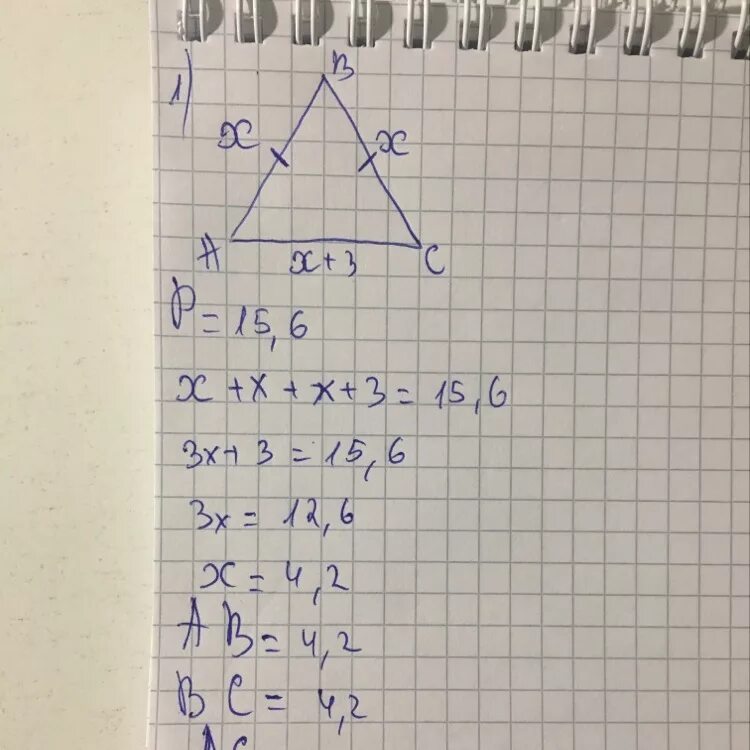 1)
B
x x
A x+3 C
P = 15,6
x + x + x + 3 = 15,6
3x + 3 = 15,6
3x = 12,6
x = 4,2
AB = 4,2
BC = 4,2